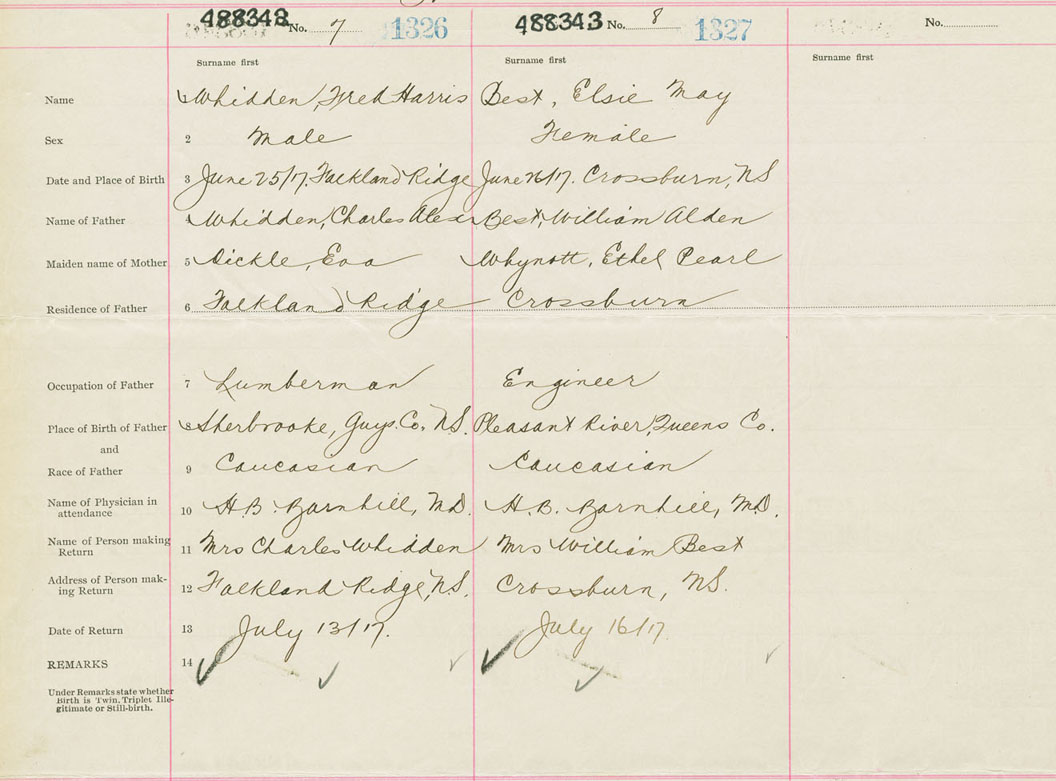 488342 No. 7 1326 488343 No. 8 1327 No.
Surname first Surname first Surname first
Name Whidden, Fred Harris Best, Elsie May
Sex 2 Male Female
Date and Place of Birth 3 June 25/17. Falkland Ridge June 26/17. Crossburn, NS
Name of Father 4 Whidden, Charles Alexr Best, William Alden
Maiden name of Mother 5 Dickle, Eva Whynott, Ethel Pearl
Residence of Father 6 Falkland Ridge Crossburn
Occupation of Father 7 Lumberman Engineer
Place of Birth of Father 8 Sherbrooke, Guys. Co. N.S. Pleasant River, Queens Co.
and
Race of Father 9 Caucasian Caucasian
Name of Physician in
attendance 10 H.B. Barnhill, M.D. H.B. Barnhill, M.D.
Name of Person making
Return 11 Mrs Charles Whidden Mrs William Best
Address of Person mak-
ing Return 12 Falkland Ridge, N.S. Crossburn, NS.
Date of Return 13 July 13/17. July 16/17.
REMARKS 14
Under Remarks state whether
Birth is Twin, Triplet Ille-
gitimate or Still-birth.